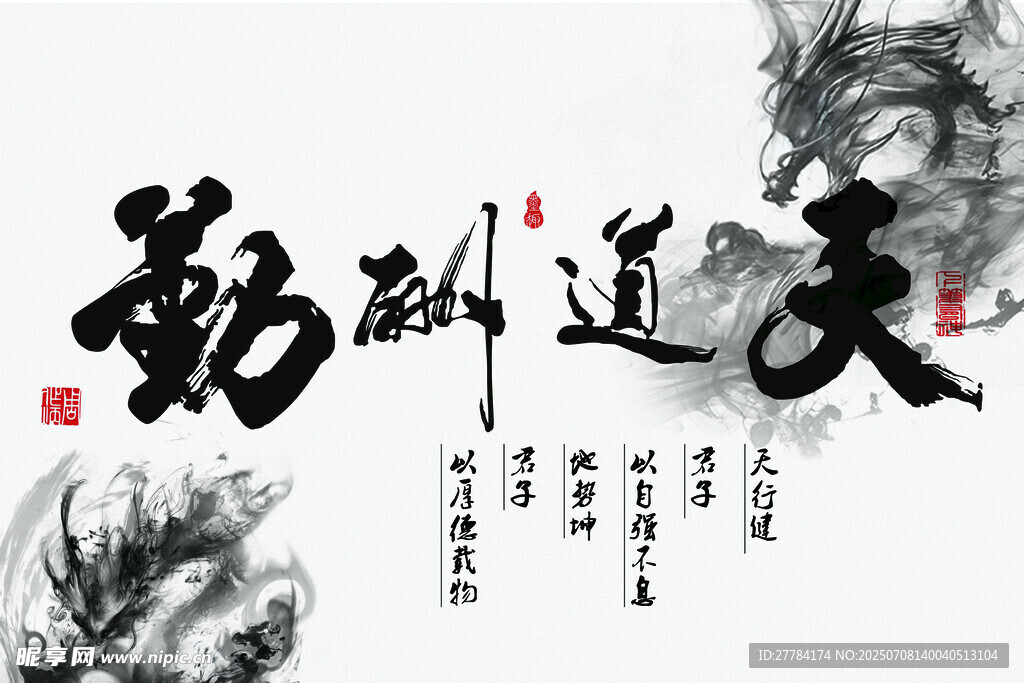 天道酬勤
天行健
君子
以自强不息
地势坤
君子
以厚德载物
墨趣
昵享网 www.nipic.cn
ID:27784174 NO:20250708140040513104